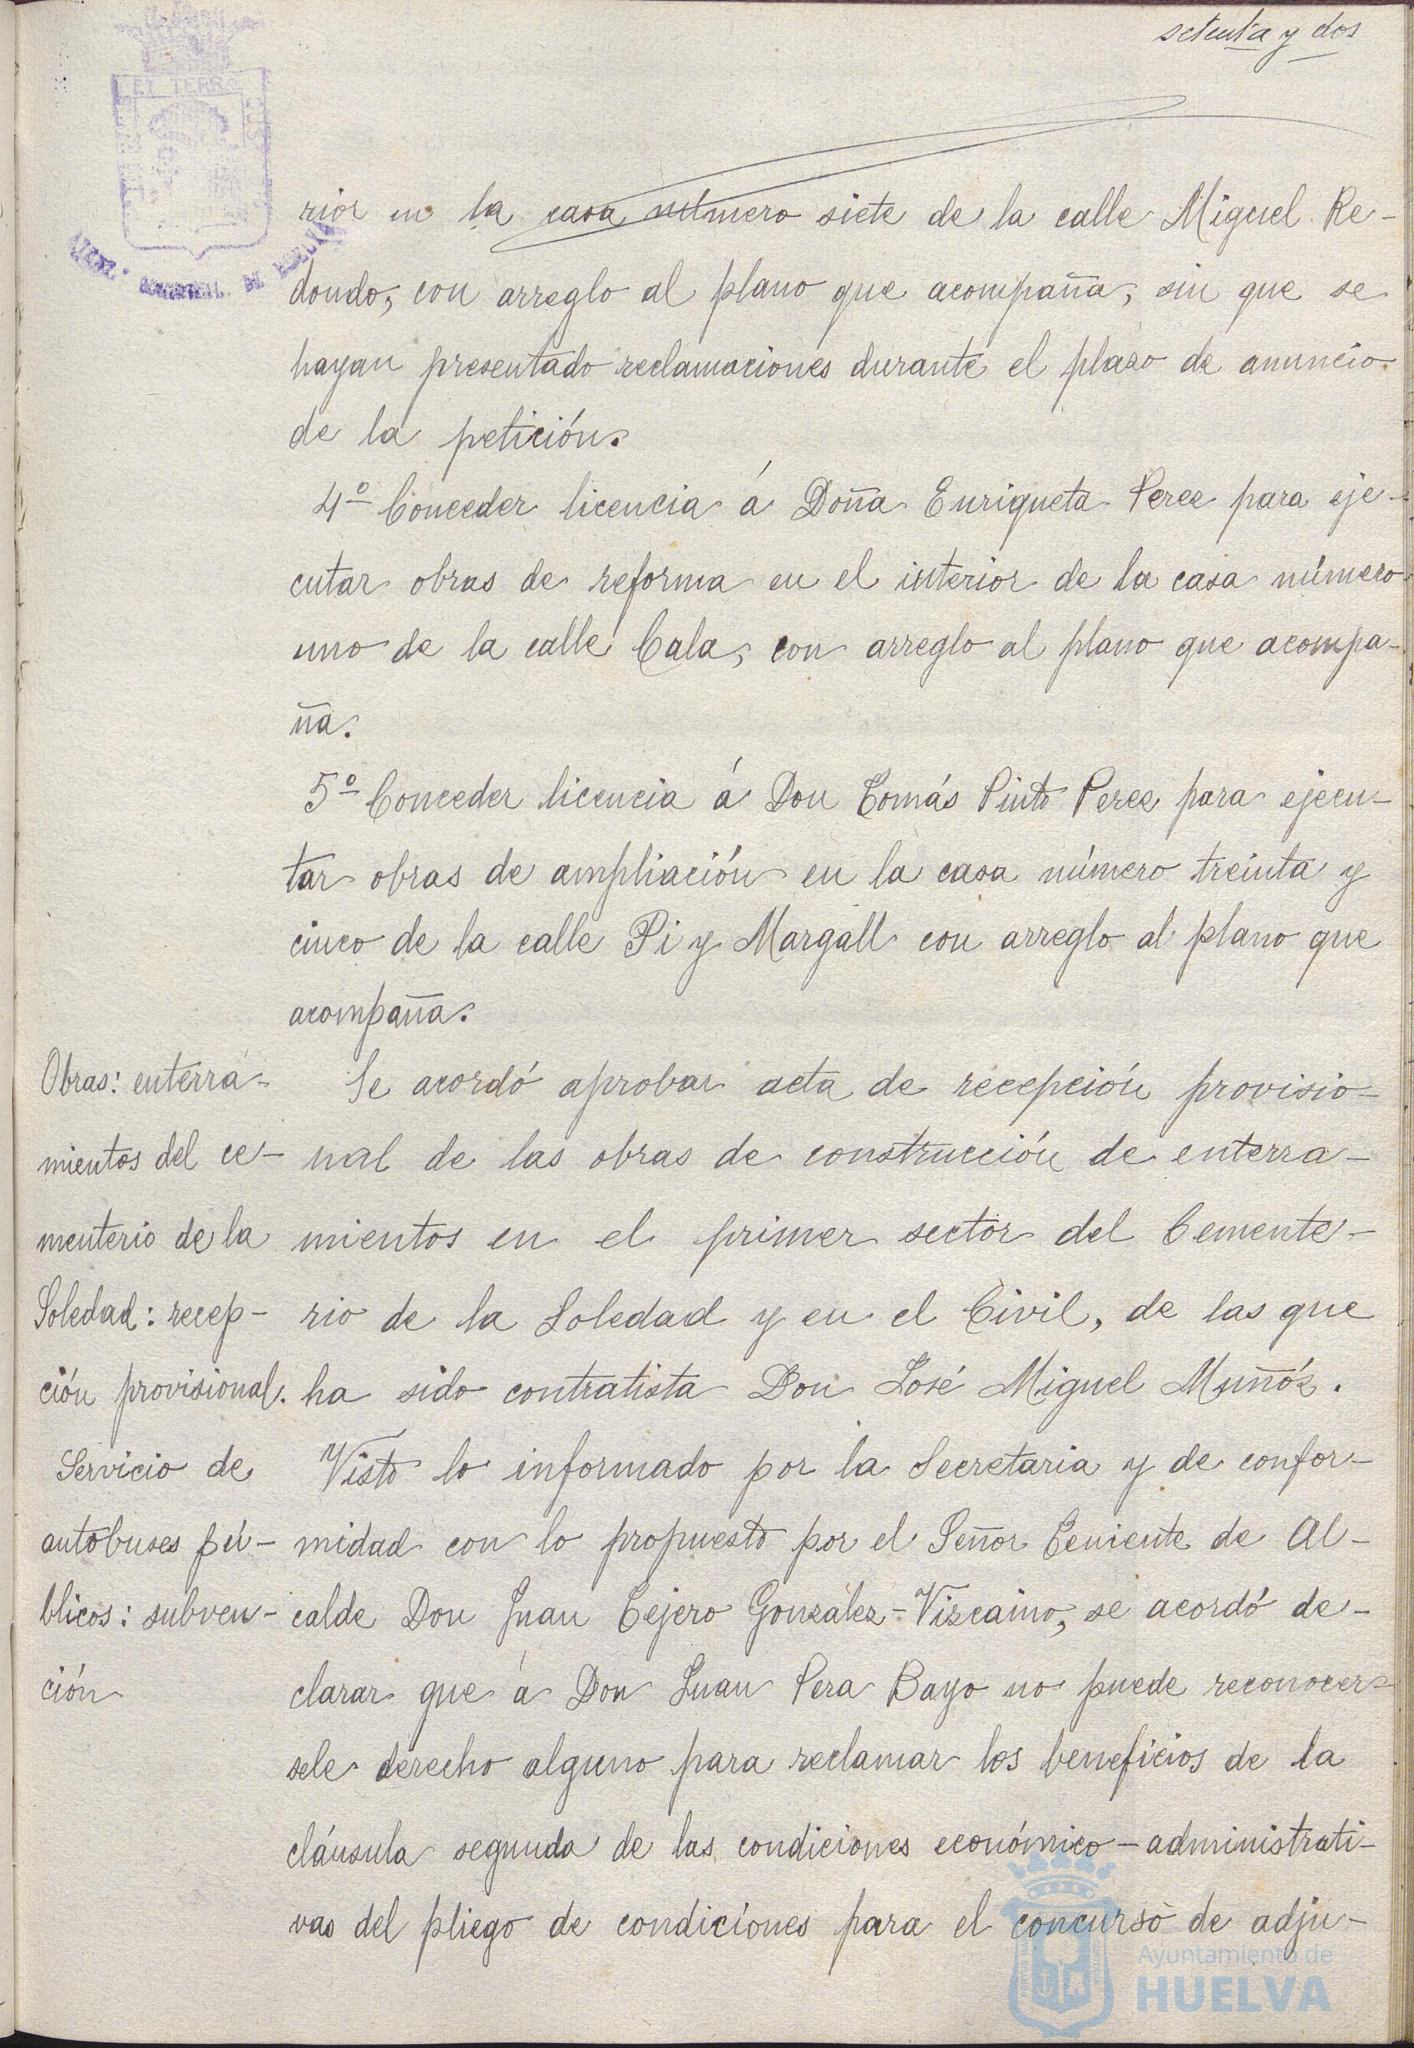 setenta y dos
rior en la casa número siete de la calle Miguel Re-
dondo, con arreglo al plano que acompaña, sin que se
hayan presentado reclamaciones durante el plazo de anuncio
de la petición.
4º Conceder licencia á Doña Enriqueta Perez para eje-
cutar obras de reforma en el interior de la casa número
uno de la calle Cala, con arreglo al plano que acompa-
ña.
5º Conceder licencia á Don Tomás Pinto Perez para ejecu-
tar obras de ampliación en la casa número treinta y
cinco de la calle Pi y Margall con arreglo al plano que
acompaña.
Obras: enterra-
mientos del ce-
menterio de la
Soledad: recep-
ción provisional.
Se acordó aprobar acta de recepción provisio-
nal de las obras de construcción de enterra-
mientos en el primer sector del Cemente-
rio de la Soledad y en el Civil, de las que
ha sido contratista Don José Miguel Muñóz.
Servicio de
autobuses pú-
blicos: subven-
ción
Visto lo informado por la Secretaria y de confor-
midad con lo propuesto por el Señor Teniente de Al-
calde Don Juan Tejero Gonzalez-Vizcaino, se acordó de-
clarar que á Don Juan Pera Bayo no puede reconocer-
sele derecho alguno para reclamar los beneficios de la
cláusula segunda de las condiciones económico-administrati-
vas del pliego de condiciones para el concurso de adju-
Ayuntamiento de
HUELVA